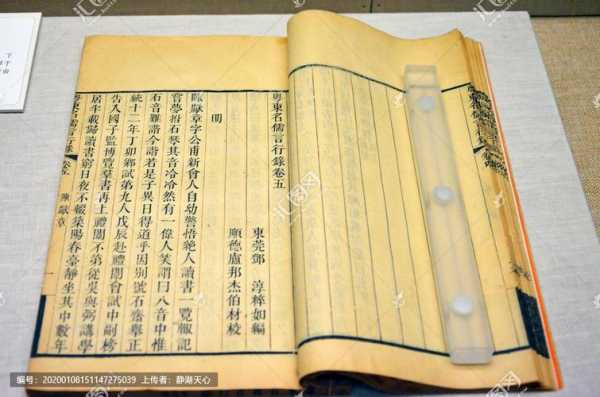 粤東名儒言行錄卷五
東莞鄧 淳粹如編
順德盧邦杰伯材校
明
陳獻章字公甫新會人自幼警悟絕人讀書一覽輒記
嘗夢拊石琴其音泠泠然有一偉人笑謂曰八音中惟
石音難諧今諧若是子異日得道乎因別號石齋舉正
統十二年丁卯鄉試第九人戊辰赴禮闈會試中副榜
告入國子監博覽羣書再上禮闈不第從吳與弼講學
居半載歸讀書窮日夜不輟築陽春臺靜坐其中數年
粤東名儒言行錄 卷五 陳獻章 一
编号:20200108151147275039 上传者:静湖天心
汇图网